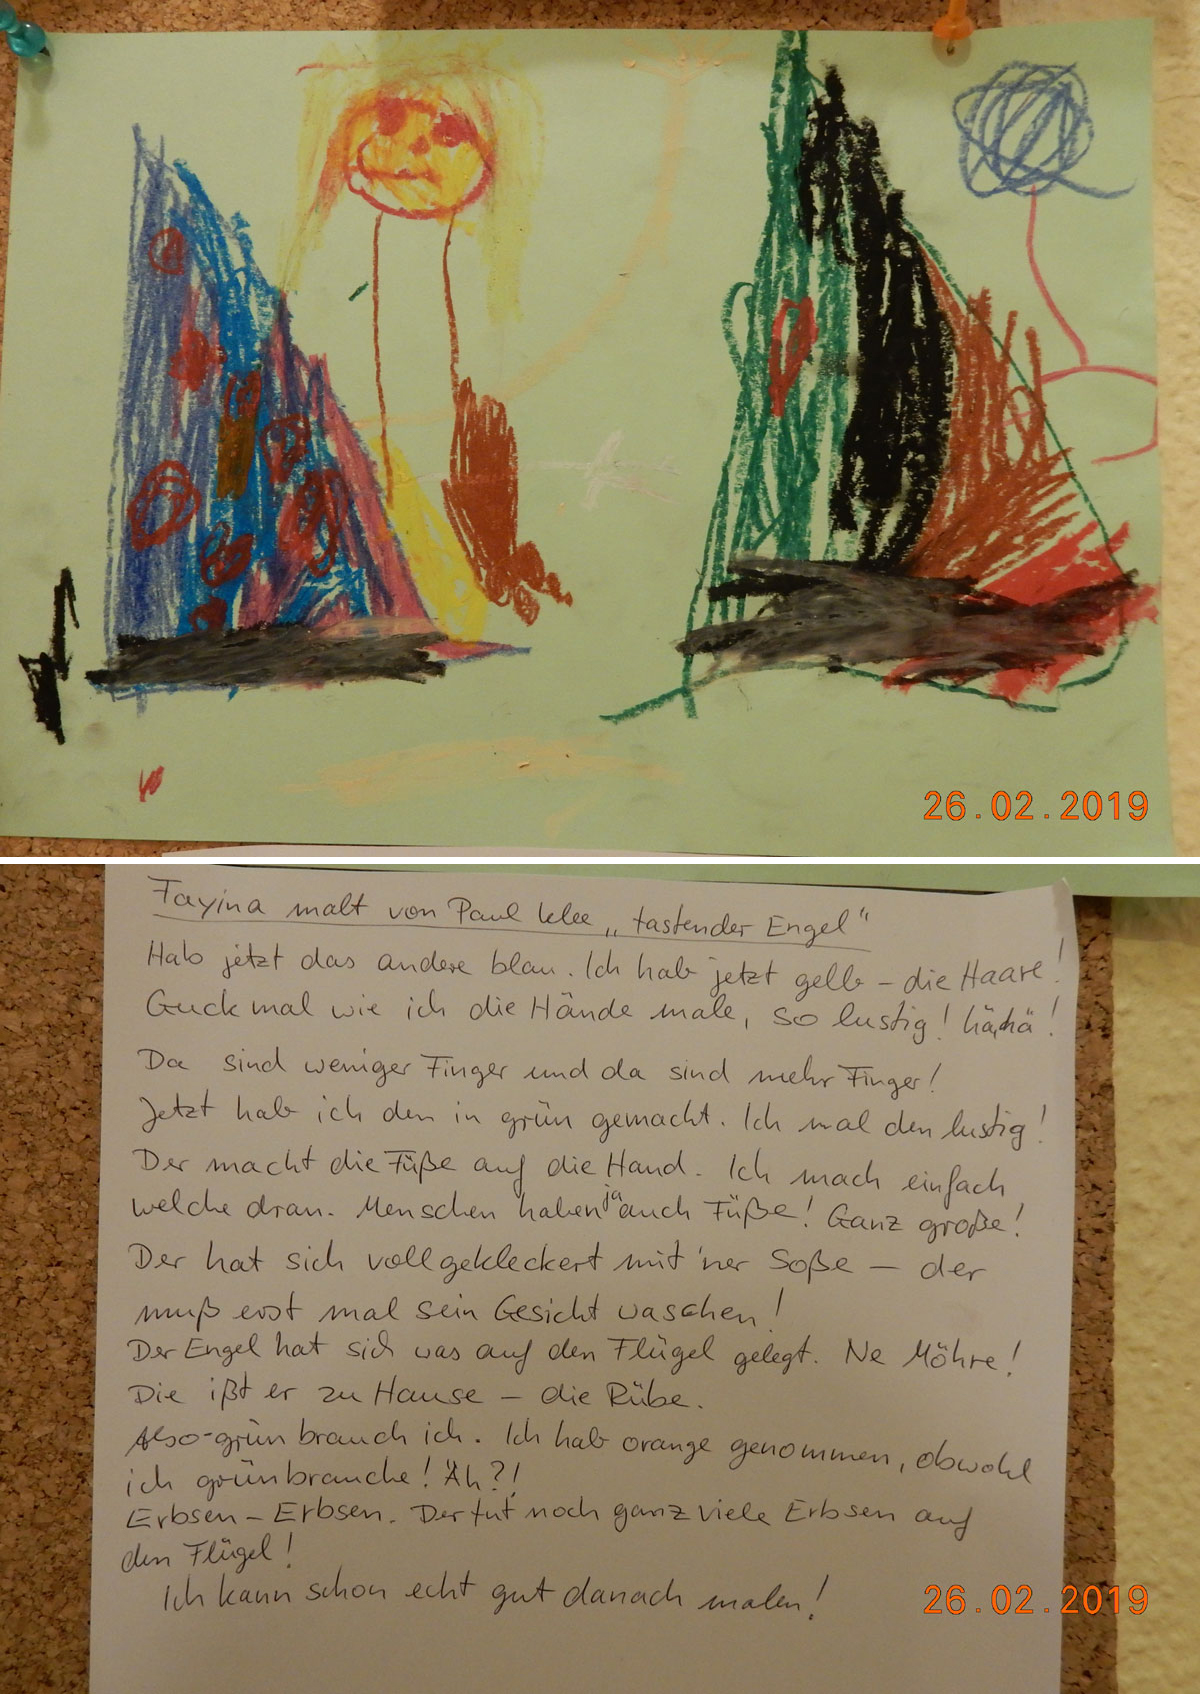 26.02.2019
Fayina malt von Paul Klee „tastender Engel“
Hab jetzt das andere blau. Ich hab jetzt gelb – die Haare!
Guck mal wie ich die Hände male, so lustig! hä,hä!
Da sind weniger Finger und da sind mehr Finger!
Jetzt hab ich den in grün gemacht. Ich mal den lustig!
Der macht die Füße auf die Hand. Ich mach einfach
welche dran. Menschen haben ja auch Füße! Ganz große!
Der hat sich vollgekleckert mit 'ner Soße – der
muß erst mal sein Gesicht waschen!
Der Engel hat sich was auf den Flügel gelegt. Ne Möhre!
Die ißt er zu Hause – die Rübe.
Also-grün brauch ich. Ich hab orange genommen, obwohl
ich grün brauche! Äh?!
Erbsen – Erbsen. Der tut noch ganz viele Erbsen auf
den Flügel!
Ich kann schon echt gut danach malen!
26.02.2019